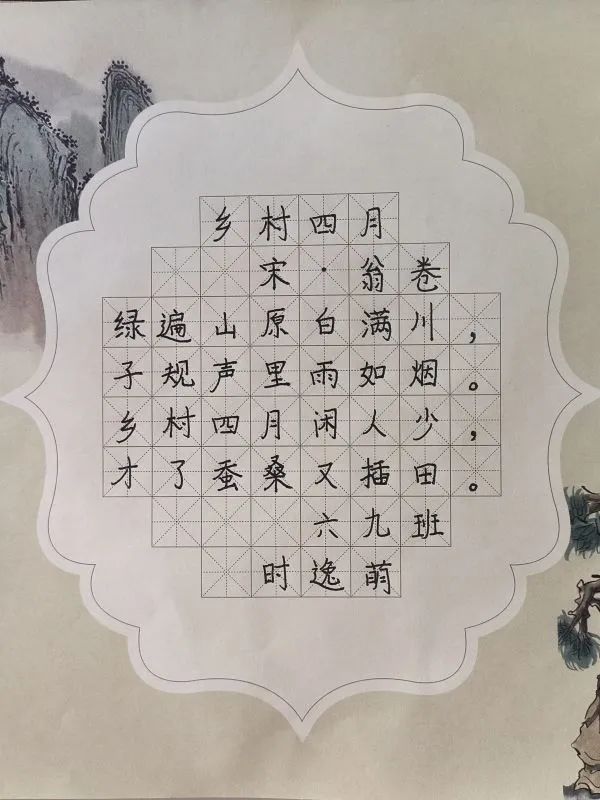 乡村四月
宋·翁卷
绿遍山原白满川，
子规声里雨如烟。
乡村四月闲人少，
才了蚕桑又插田。
六九班
时逸萌